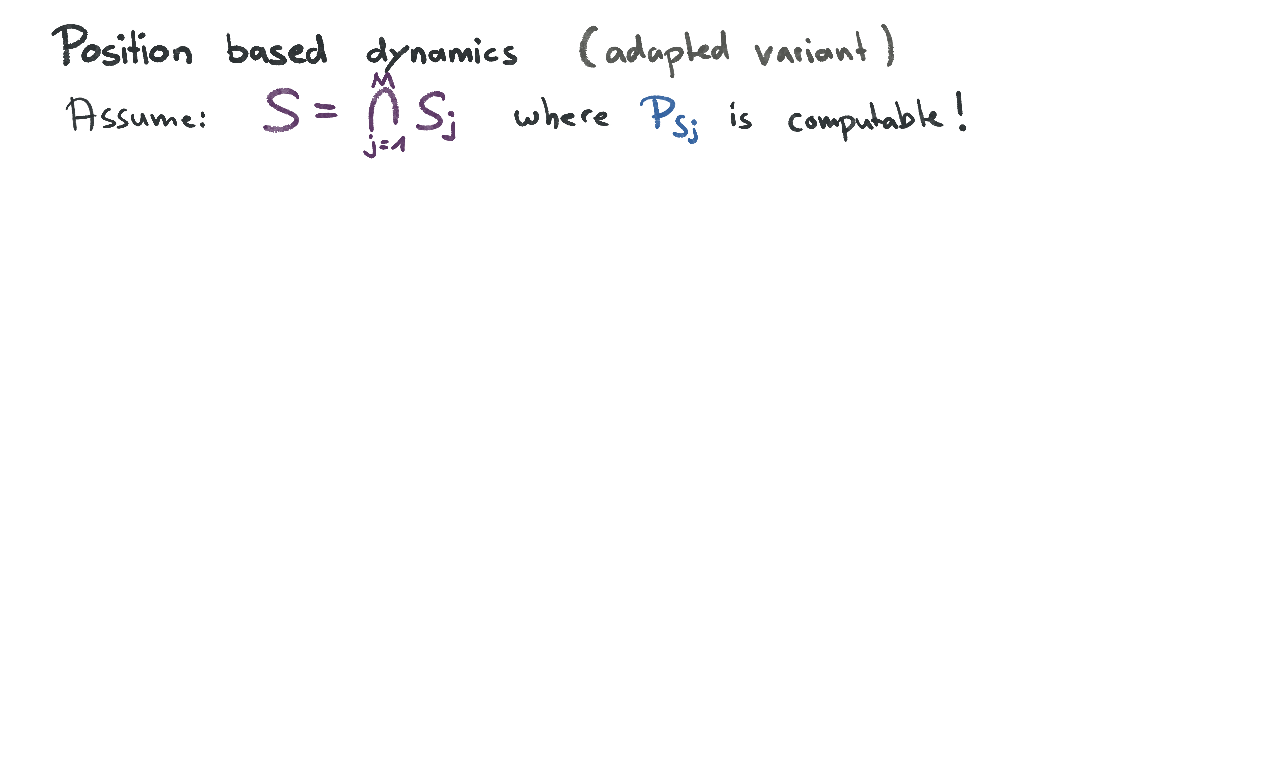 Position based dynamics (adapted variant)
Assume: S = ⋂_{j=1}^{M} S_j where P_{S_j} is computable!